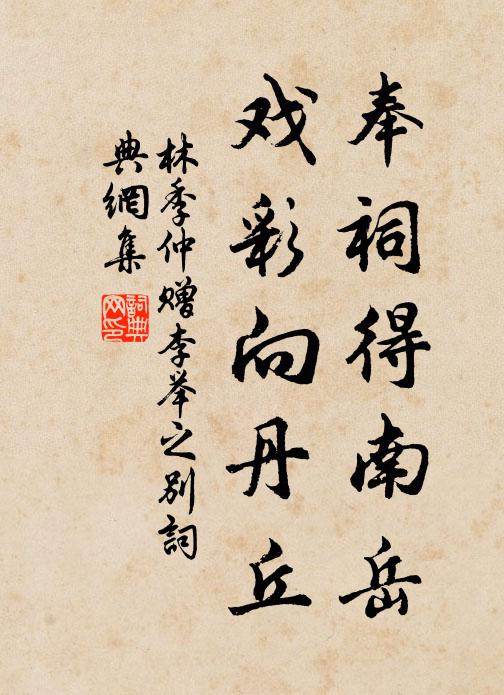 奉祠得南岳
戏彩向丹丘
林季仲赠李举之别詞
典網集
詞典网印